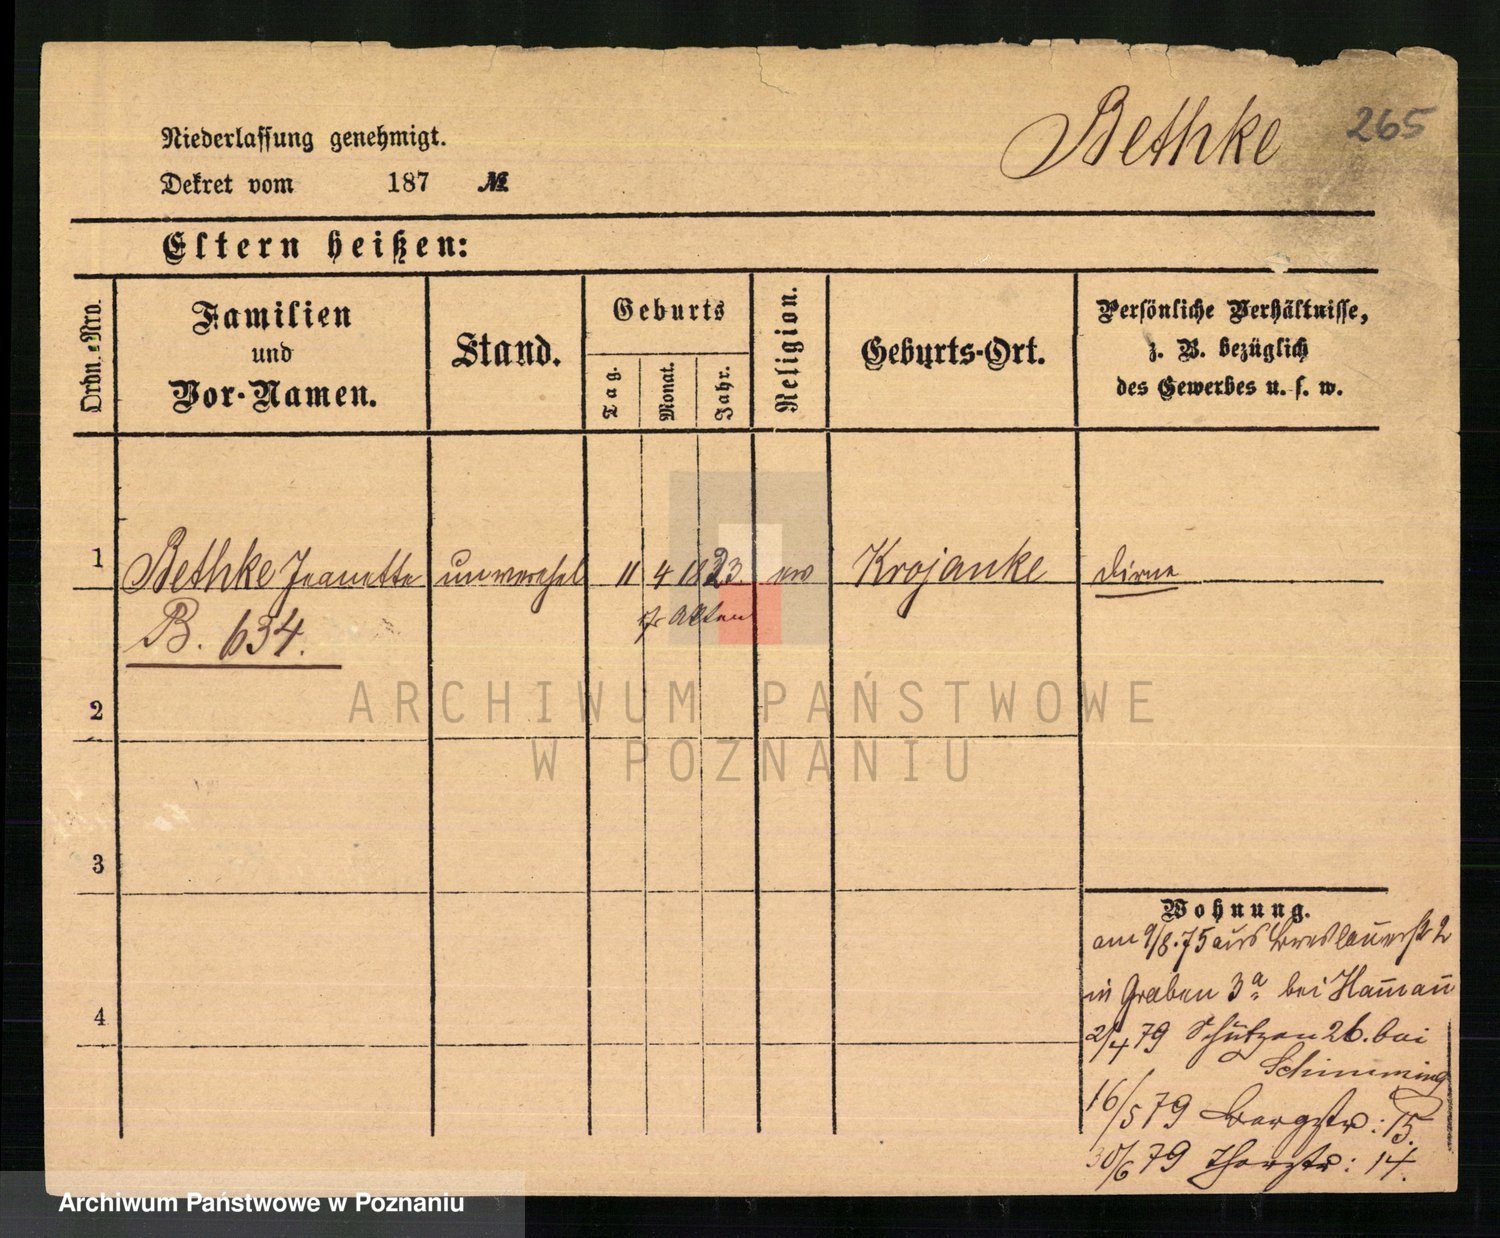 Bethke 265
Niederlassung genehmigt.
Dekret vom 187 №
Eltern heißen:
Ordn.-Nro.
Familien
und
Vor-Namen.
Stand.
Geburts
Tag.
Monat.
Jahr.
Religion.
Geburts-Ort.
Persönliche Verhältnisse,
z. B. bezüglich
des Gewerbes u. s. w.
1 Bethke Jeanette unverehel 11 4 1823. ev Krojanke Dirne
B. 634. Akten
2
3
4
Wohnung.
am 9/8.75 aus Breslauerstr 2
in Graben 3a bei Hamau
2/4 79 Schützen 26. bei
Schimming
16/5 79 Bergstr: 15.
30/6 79 Thorstr: 14.
ARCHIWUM PAŃSTWOWE
W POZNANIU
Archiwum Państwowe w Poznaniu